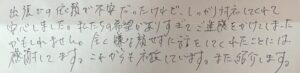 出張での依頼が不安だったけど、しっかり対応してくれて
安心しました。私たちの希望が多すぎてご迷惑をかけてしまった
かもしれません。全く嫌な顔せずに話をしてくれたことには
感謝してます。これからも応援しています。また紹介します。